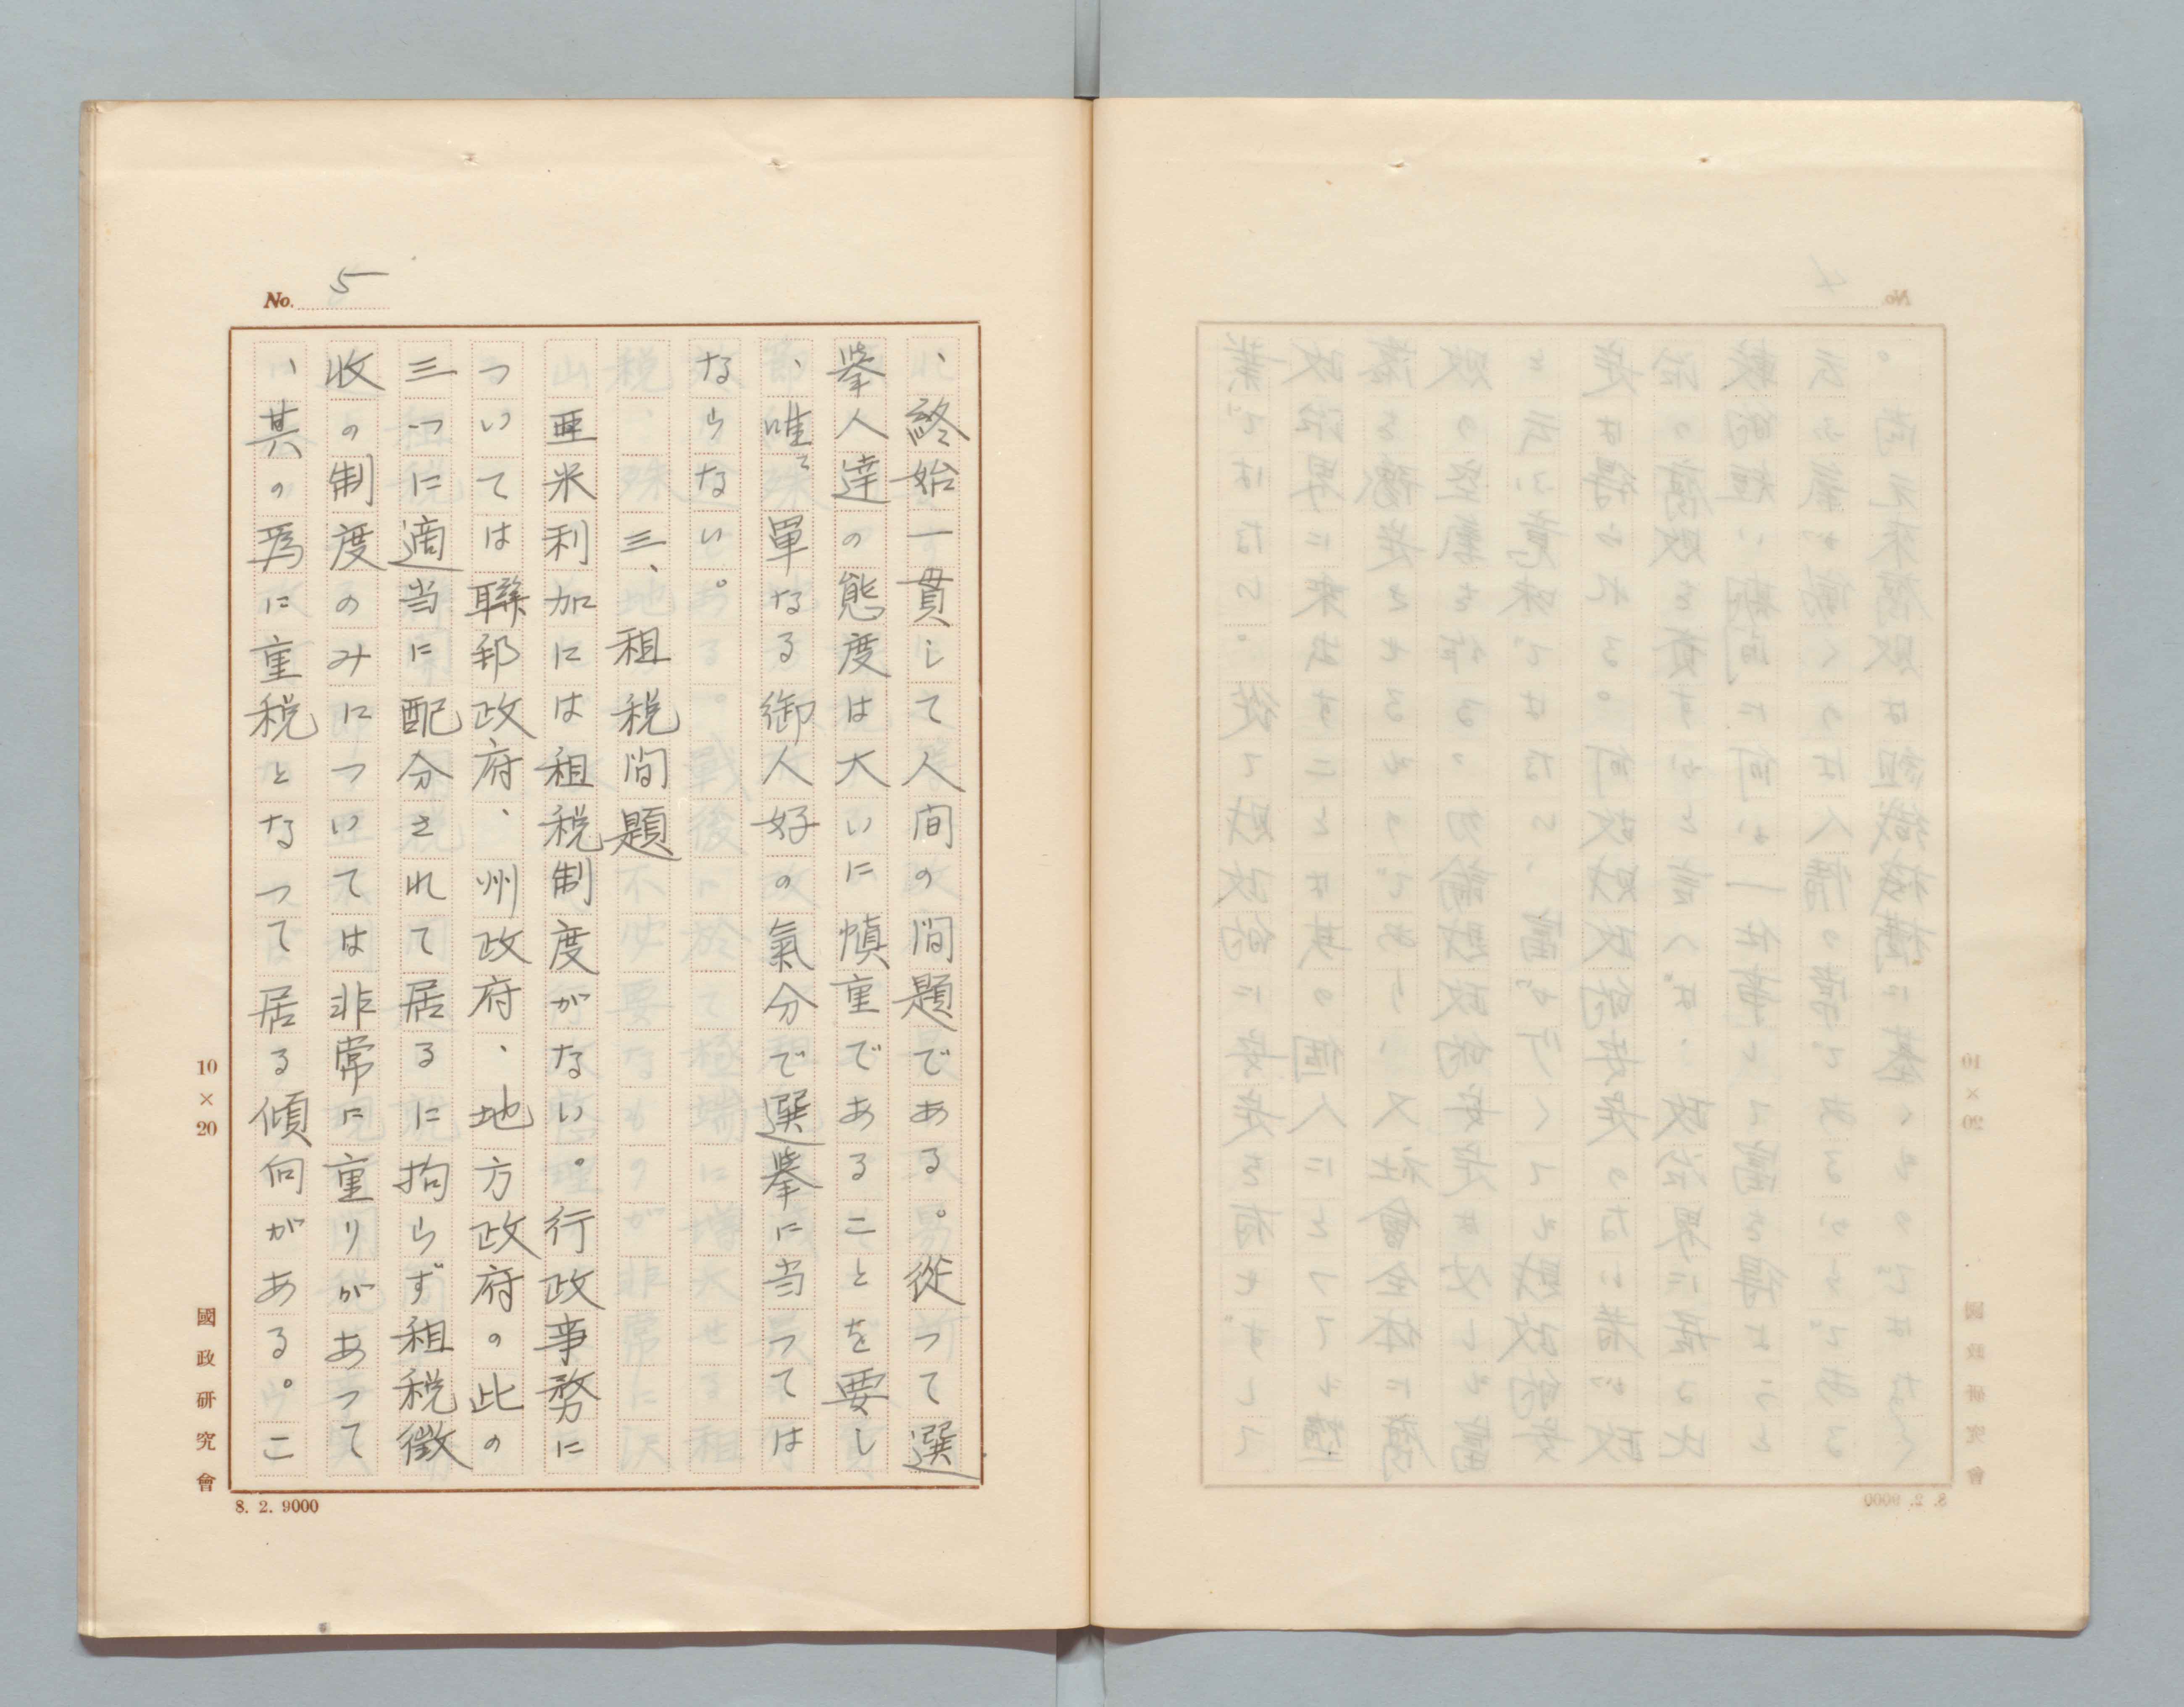 No. 5
、終始一貫して人間の問題である。從つて選
挙人達の態度は大いに慎重であることを要し
、唯て單なる御人好の氣分で選挙に当つては
ならない。
三、租税問題
亜米利加には租税制度がない。行政事務に
ついては聯邦政府、州政府、地方政府の此の
三つに適当に配分されて居るに拘らず租税徴
收の制度のみについては非常に重りがあつて
、其の為に重税となつて居る傾向がある。こ
10×20
國政研究會
8. 2. 9000